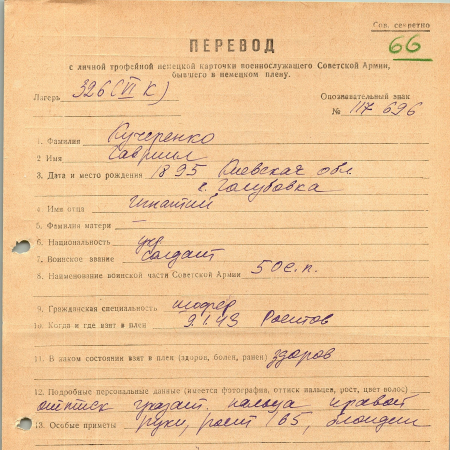 Сов. секретно
66
ПЕРЕВОД
с личной трофейной немецкой карточки военнослужащего Советской Армии,
бывшего в немецком плену.
Лагерь 326 (VI К)
Опознавательный знак
№ 117 696
1. Фамилия Кучеренко
2 Имя Гавриил
3. Дата и место рождения 1895 Киевская обл.
с. Голубовка
4 Имя отца Игнатий
5. Фамилия матери —
6. Национальность укр
7. Воинское звание солдат
8. Наименование воинской части Советской Армии 50 с.п.
9. Гражданская специальность шофер
10. Когда и где взят в плен 9.1.43 Ростов
11. В каком состоянии взят в плен (здоров, болен, ранен) здоров
12. Подробные персональные данные (имеется фотография, оттиск пальцев, рост, цвет волос)
оттиск указат. пальца правой
13. Особые приметы руки, рост 165, блондин